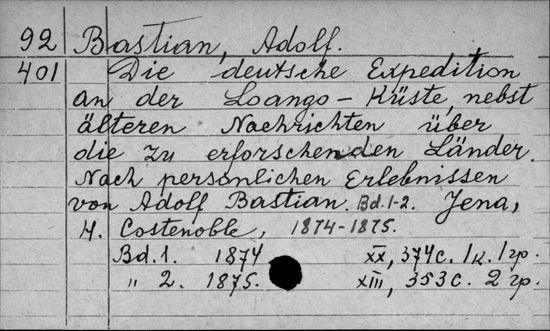 92 Bastian, Adolf.
401 Die deutsche Expedition
an der Loango-Küste, nebst
älteren Nachrichten über
die zu erforschenden Länder.
Nach persönlichen Erlebnissen
von Adolf Bastian. Bd. 1-2. Jena,
H. Costenoble, 1874-1875.
Bd. 1. 1874 XX, 374 c. 1 к. 1 гр.
" 2. 1875. XIII, 353 c. 2 гр.